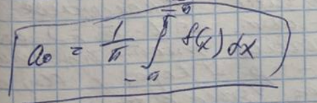 a₀ = 1/π ∫_{-π}^{π} f(x) dx